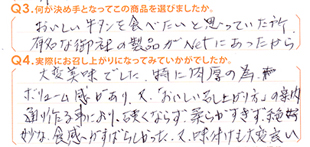 Q3.何が決め手となってこの商品を選びましたか。
おいしい牛タンを食べたいと思っていた所、
有名な御社の製品がNetにあったから
Q4.実際にお召し上がりになってみていかがでしたか。
大変美味でした。特に肉厚の為
ボリューム感があり、又、「おいしい召し上がり方」の案内
通り作る事により、硬くならず、柔らかすぎず、絶
妙な、食感がすばらしかった。又、味付けも大変良い